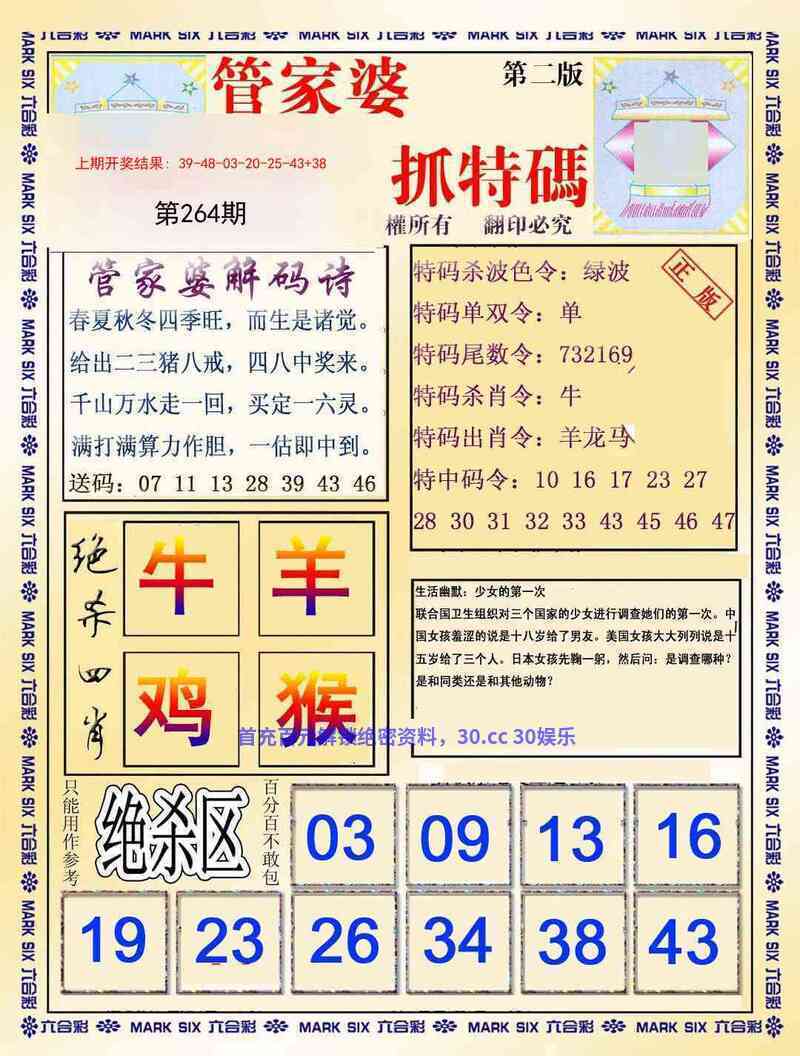 MARK SIX 六合彩 MARK SIX 六合彩 MARK SIX 六合彩 MARK SIX 六合彩
管家婆
第二版
抓特碼
上期开奖结果：39-48-03-20-25-43+38
第264期
權所有 翻印必究
管家婆解码诗
春夏秋冬四季旺，而生是诸觉。
给出二三猪八戒，四八中奖来。
千山万水走一回，买定一六灵。
满打满算力作胆，一估即中到。
送码：07 11 13 28 39 43 46
正版
特码杀波色令：绿波
特码单双令：单
特码尾数令：732169
特码杀肖令：牛
特码出肖令：羊龙马
特中码令：10 16 17 23 27
28 30 31 32 33 43 45 46 47
绝杀四肖
牛 羊
鸡 猴
生活幽默：少女的第一次
联合国卫生组织对三个国家的少女进行调查她们的第一次。中
国女孩羞涩的说是十八岁给了男友。美国女孩大大列列说是十
五岁给了三个人。日本女孩先鞠一躬，然后问：是调查哪种？
是和同类还是和其他动物？
首充百元解锁绝密资料，30.cc 30娱乐
只能用作参考
绝杀区
百分百不敢包
03 09 13 16
19 23 26 34 38 43
六合彩 MARK SIX 六合彩 MARK SIX 六合彩 MARK SIX 六合彩 MARK SIX 六合彩